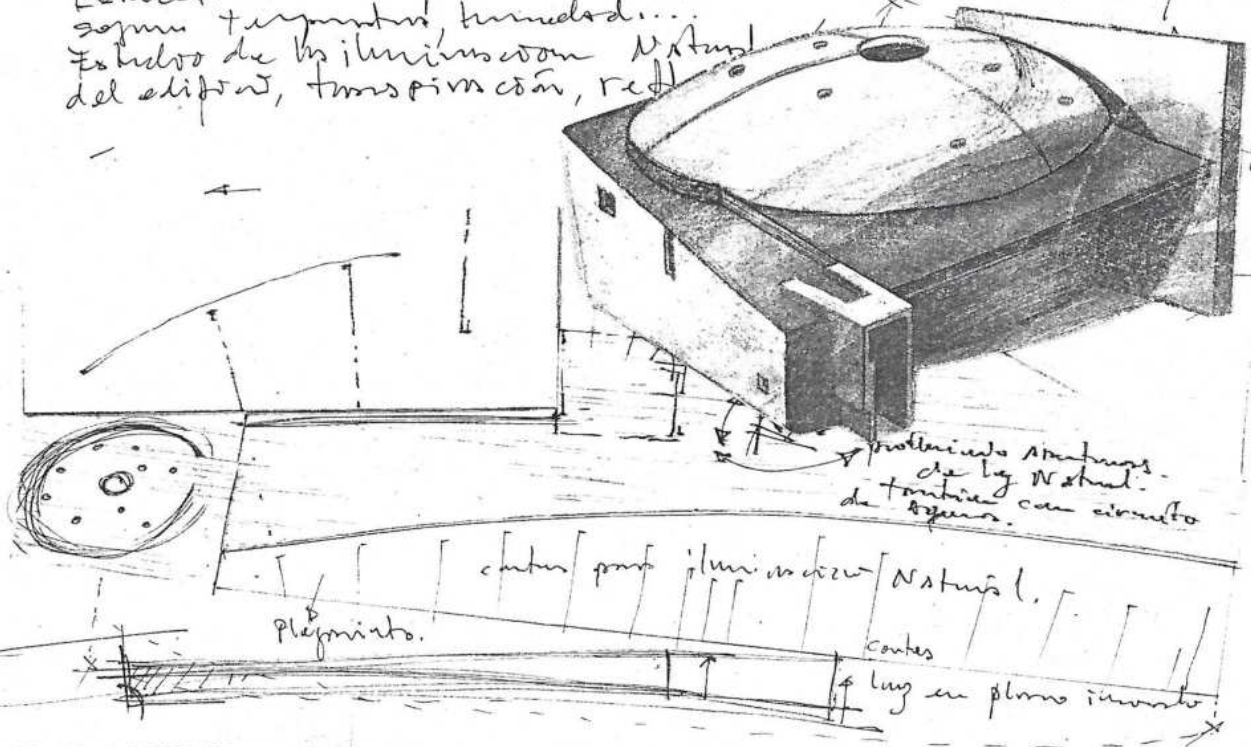 según temperatura, humedad....
Estudio de la iluminación Natural
del edificio, transpiración,
de luz Natural.
también con circuito
de aguas.
cortes para iluminación Natural.
Plegamiento.
cortes
luz en plano